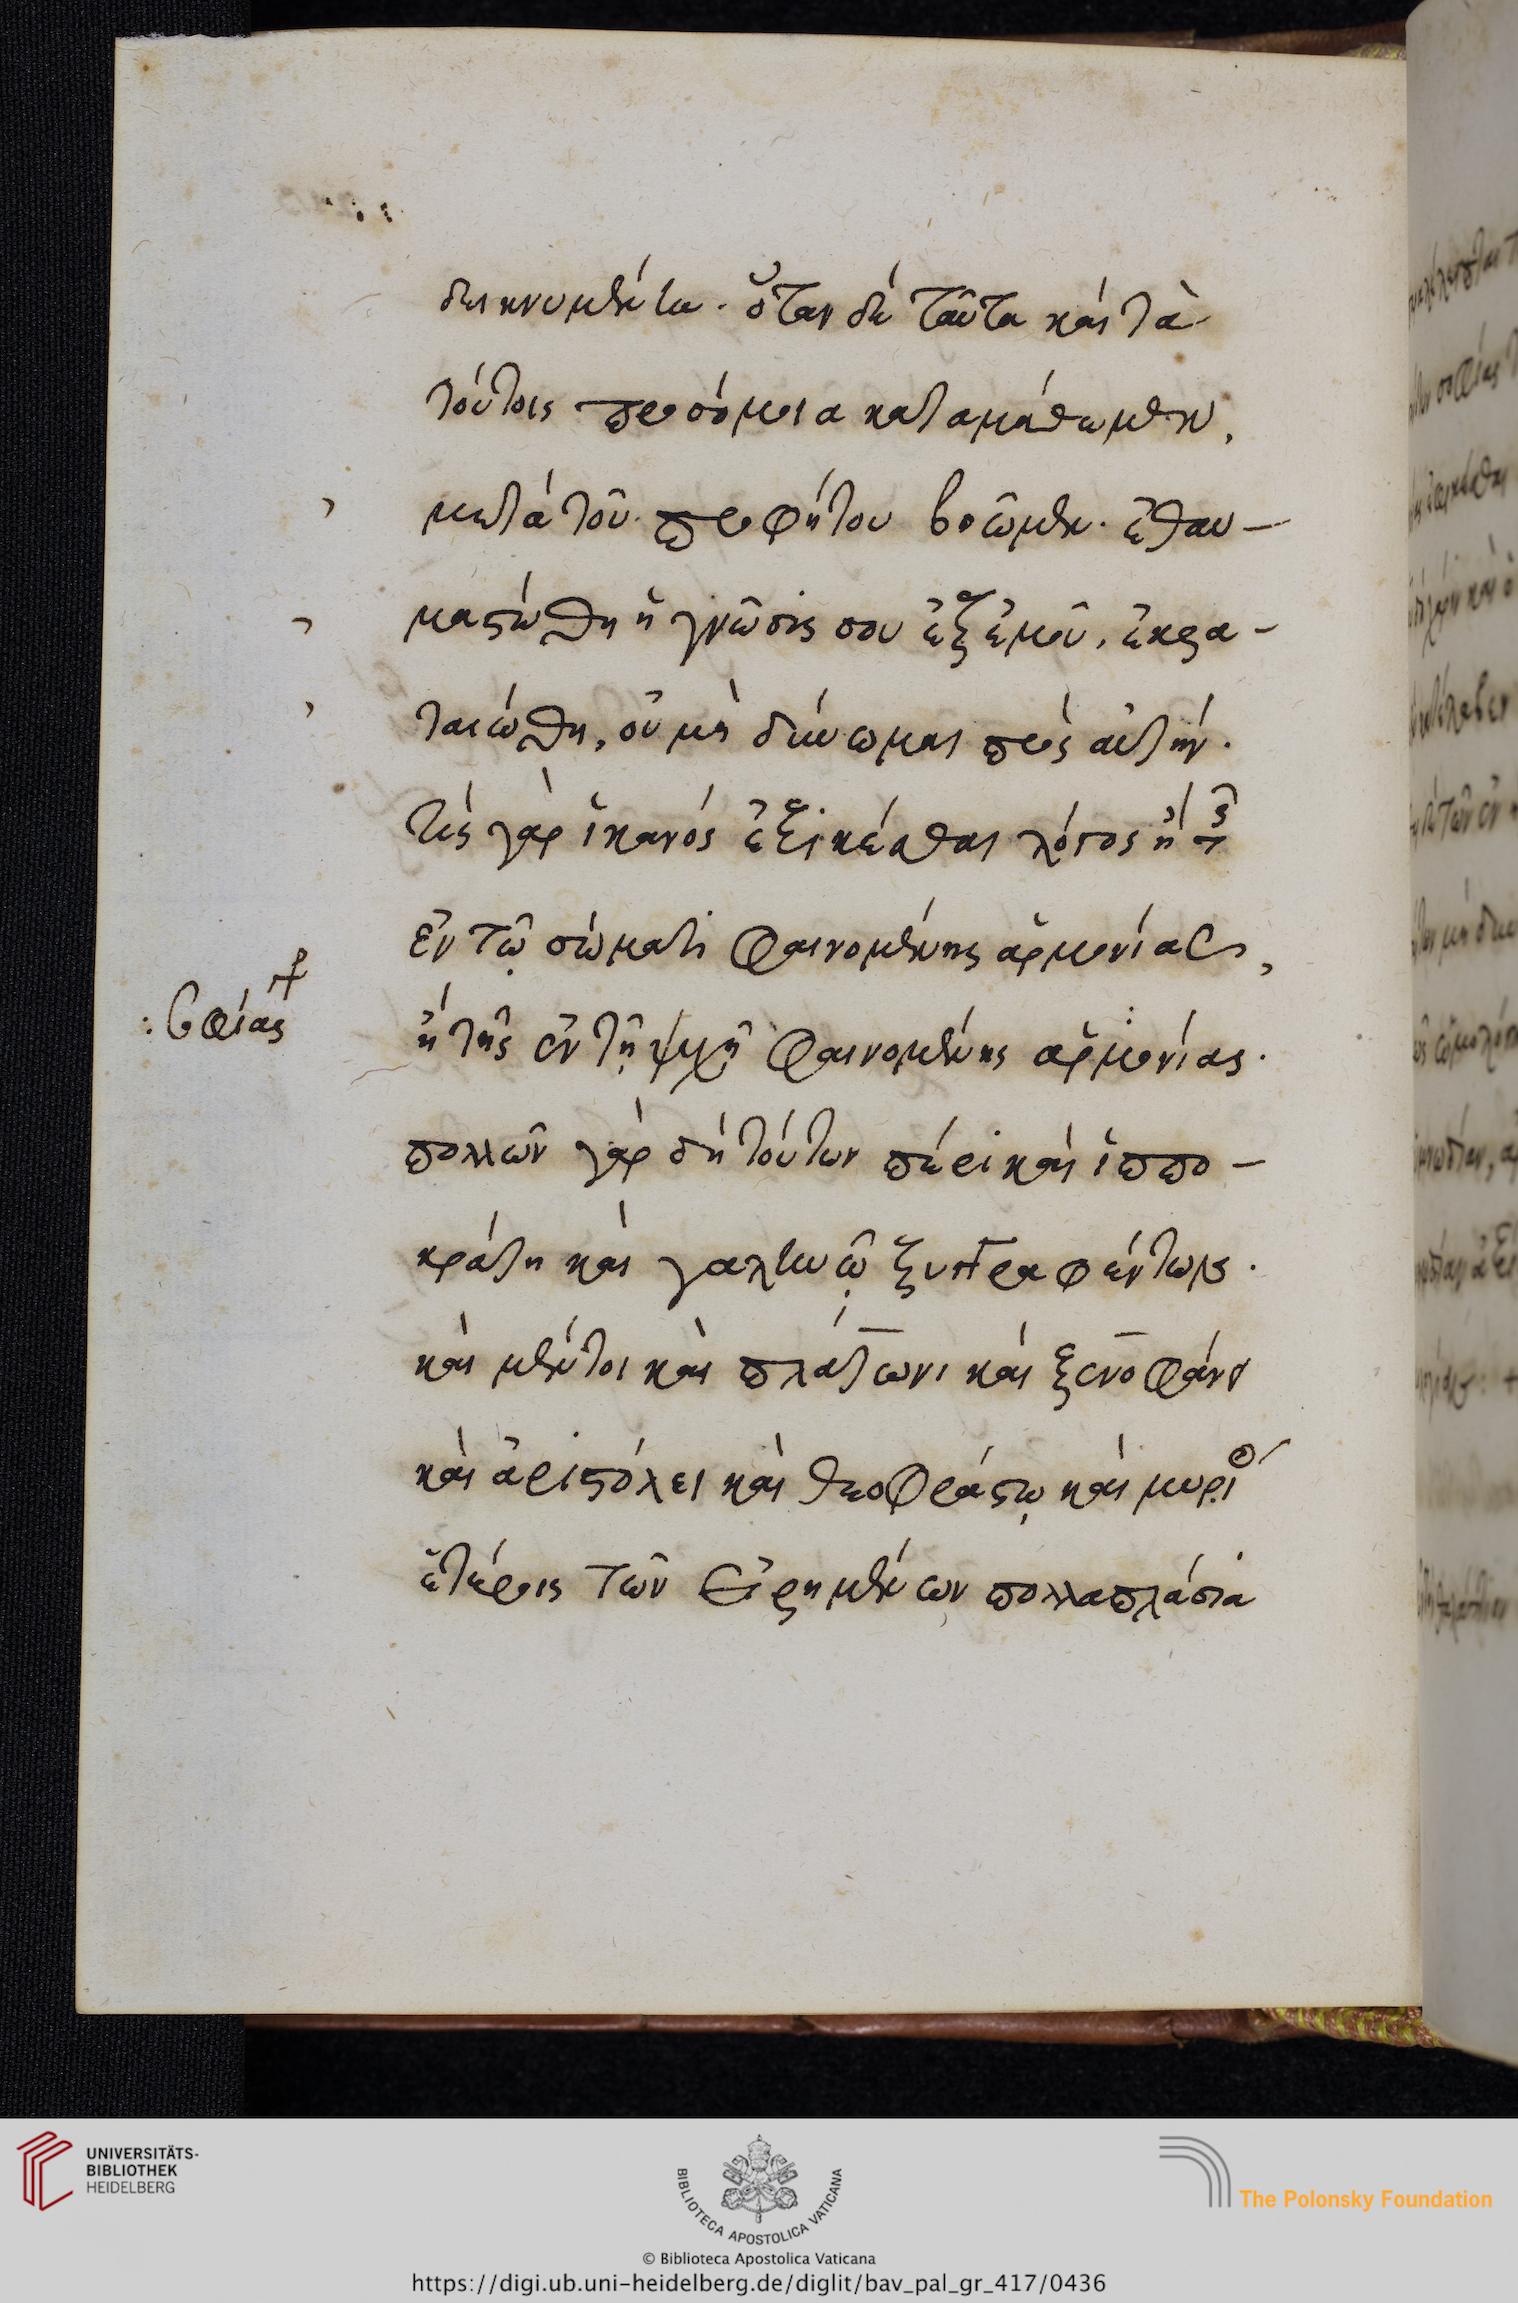 δεικνυμένω. ὅταν δὲ ταῦτα καὶ τὰ
τούτοις προσόμοια καταμάθωμεν,
μετὰ τοῦ προφήτου βοῶμεν. ἐθαυ-
μαστώθη ἡ γνῶσίς σου ἐξ ἐμοῦ, ἐκρα-
ταιώθη, οὐ μὴ δύνωμαι πρὸς αὐτήν.
τίς γὰρ ἱκανὸς ἐξικέσθαι λόγος ἢ τῆς
ἐν τῷ σώματι φαινομένης ἁρμονίας,
σοφίας
ἢ τῆς ἐν τῇ ψυχῇ φαινομένης ἁρμονίας.
πολλῶν γὰρ δὴ τούτων πέρι καὶ ἱππο-
κράτη καὶ γαληνῷ ξυγγραφέντων.
καὶ μέντοι καὶ πλάτωνι καὶ ξενοφῶντι
καὶ ἀριστοτέλει καὶ θεοφράστῳ καὶ μυρίοις
ἑτέροις τῶν εἰρημένων πολλαπλάσια
UNIVERSITÄTS-
BIBLIOTHEK
HEIDELBERG
BIBLIOTECA APOSTOLICA VATICANA
The Polonsky Foundation
© Biblioteca Apostolica Vaticana
https://digi.ub.uni-heidelberg.de/diglit/bav_pal_gr_417/0436